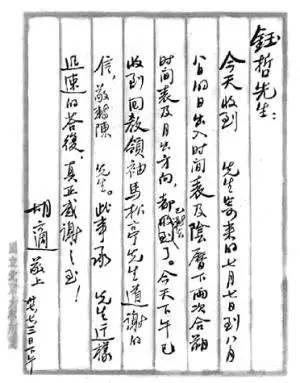 鈺哲先生：
今天收到 先生寄來的七月七日到八月
八日的日出入时间表及陰曆下兩次合朔
时间表及月出方向，都收到了。今天下午已
收到回教領袖馬松亭先生道謝的
信，敬轉陳 先生。此事承 先生这樣
迅速的答復，真正感謝之至！
胡適敬上 三日下午